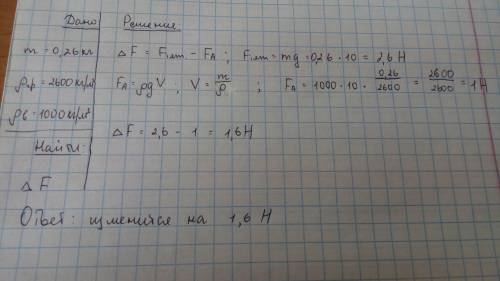 Дано
m = 0,26 кг
ρгр = 2600 кг/м³
ρв = 1000 кг/м³
Найти:
ΔF
Решение
ΔF = F1лт − FА ; F1лт = mg = 0,26 · 10 = 2,6 Н
FА = ρgV , V = m/ρ ; FА = 1000 · 10 · 0,26/2600 = 2600/2600 = 1 Н
ΔF = 2,6 − 1 = 1,6 Н
Ответ: изменится на 1,6 Н